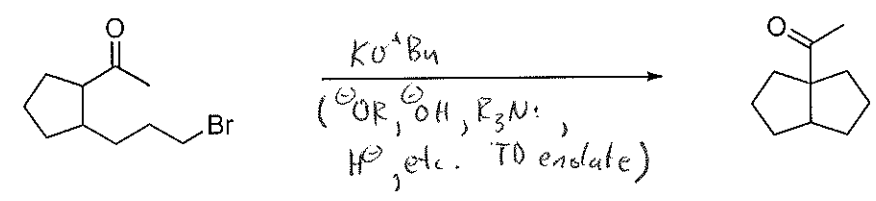 O
Br
KOtBu
(⊖OR, ⊖OH, R3N:,
H⊖, etc. TD enolate)
O